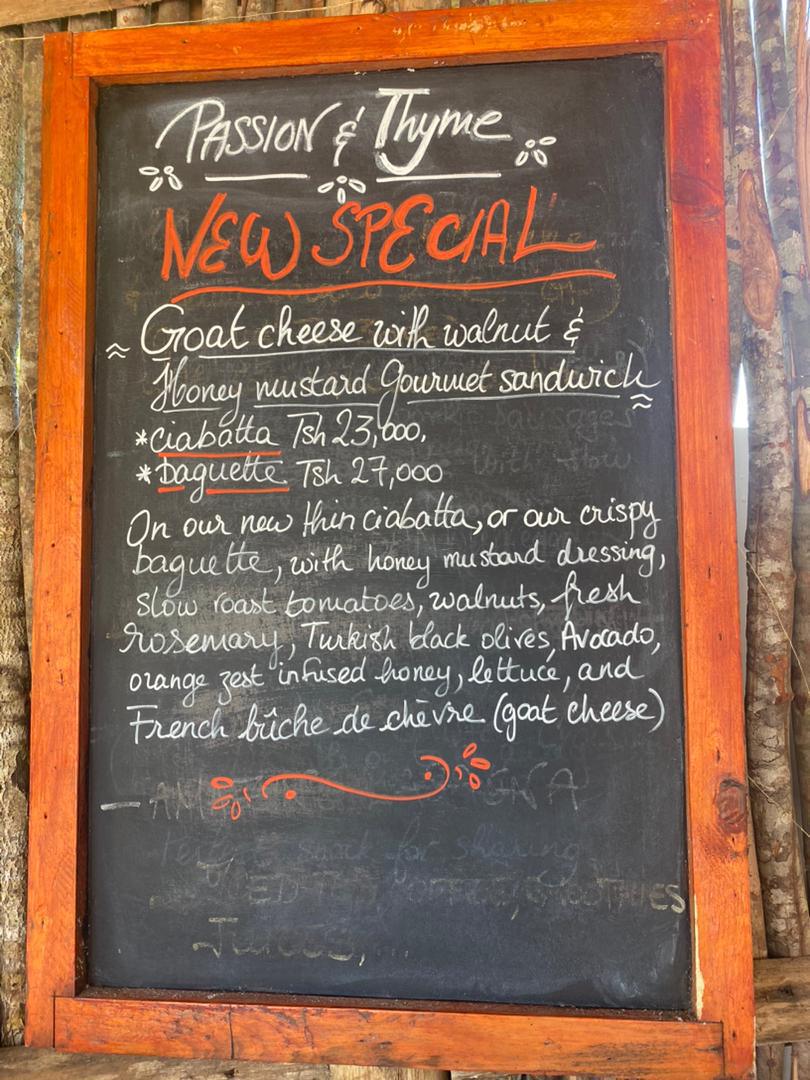 PASSION & Thyme
NEW SPECIAL
≈ Goat cheese with walnut &
Honey mustard Gourmet sandwich ≈
*ciabatta Tsh 23,000.
*baguette Tsh 27,000
On our new thin ciabatta, or our crispy
baguette, with honey mustard dressing,
slow roast tomatoes, walnuts, fresh
rosemary, Turkish black olives, Avocado,
orange zest infused honey, lettuce, and
French bûche de chèvre (goat cheese)
snack for sharing
Juices,...